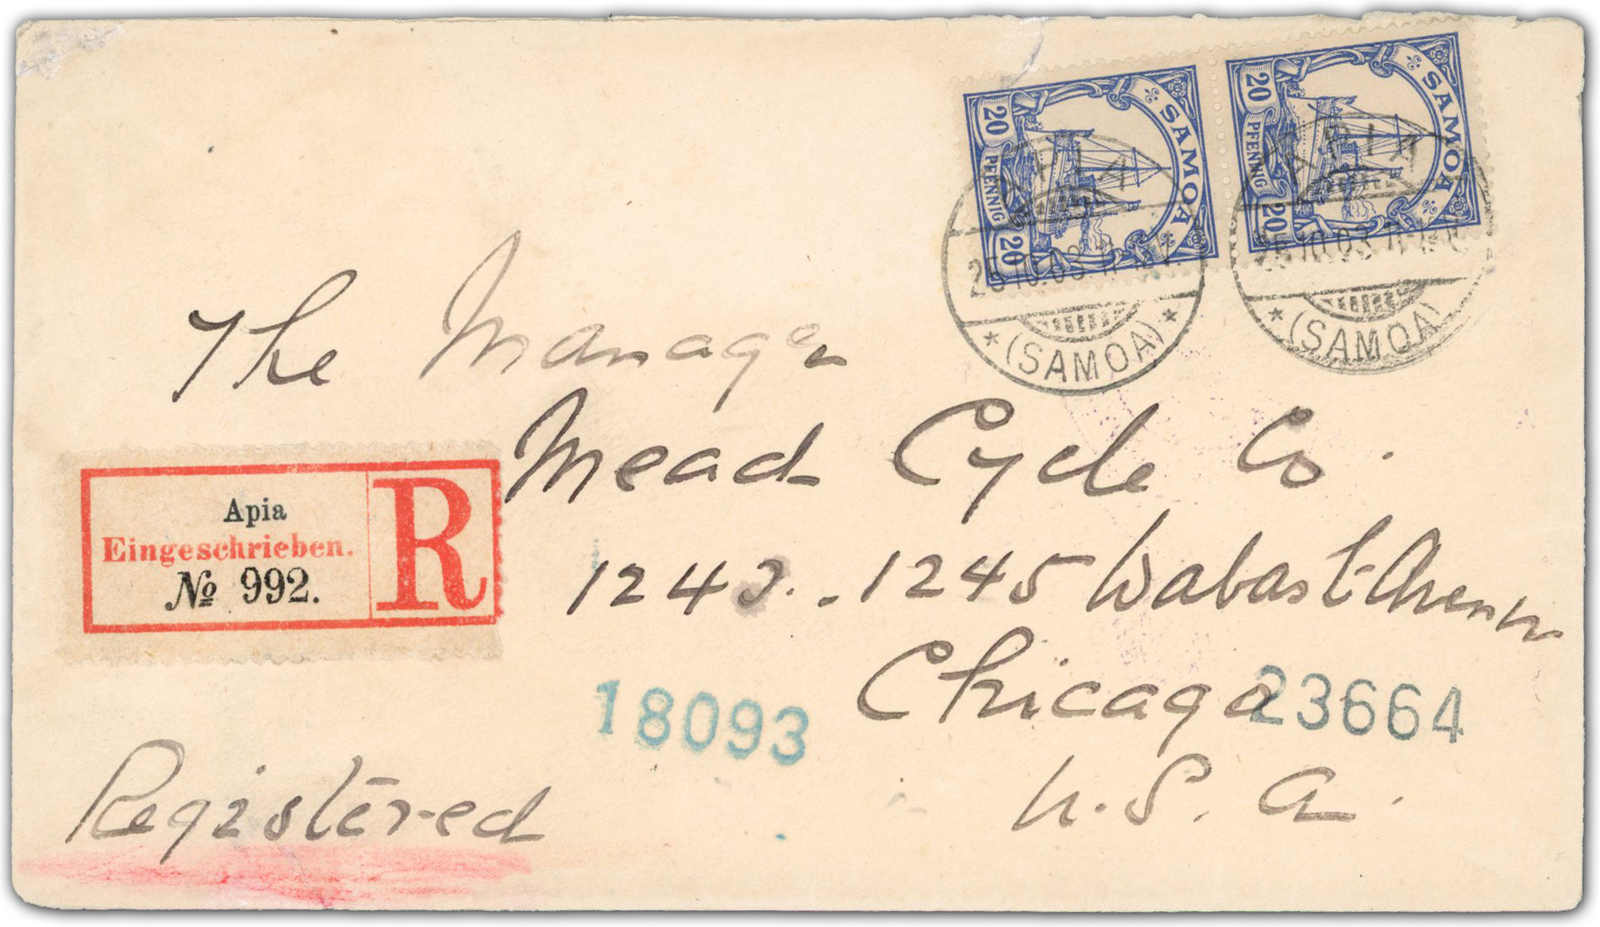 SAMOA
20 PFENNIG 20
SAMOA
20 PFENNIG 20
APIA
25.10.03
* (SAMOA) *
APIA
25.10.03
* (SAMOA)
The Manager
Mead Cycle Co.
Apia
Eingeschrieben.
№ 992.
R
1243.. 1245 Wabash Avenue
Chicago
23664
18093
U.S.A.
Registered